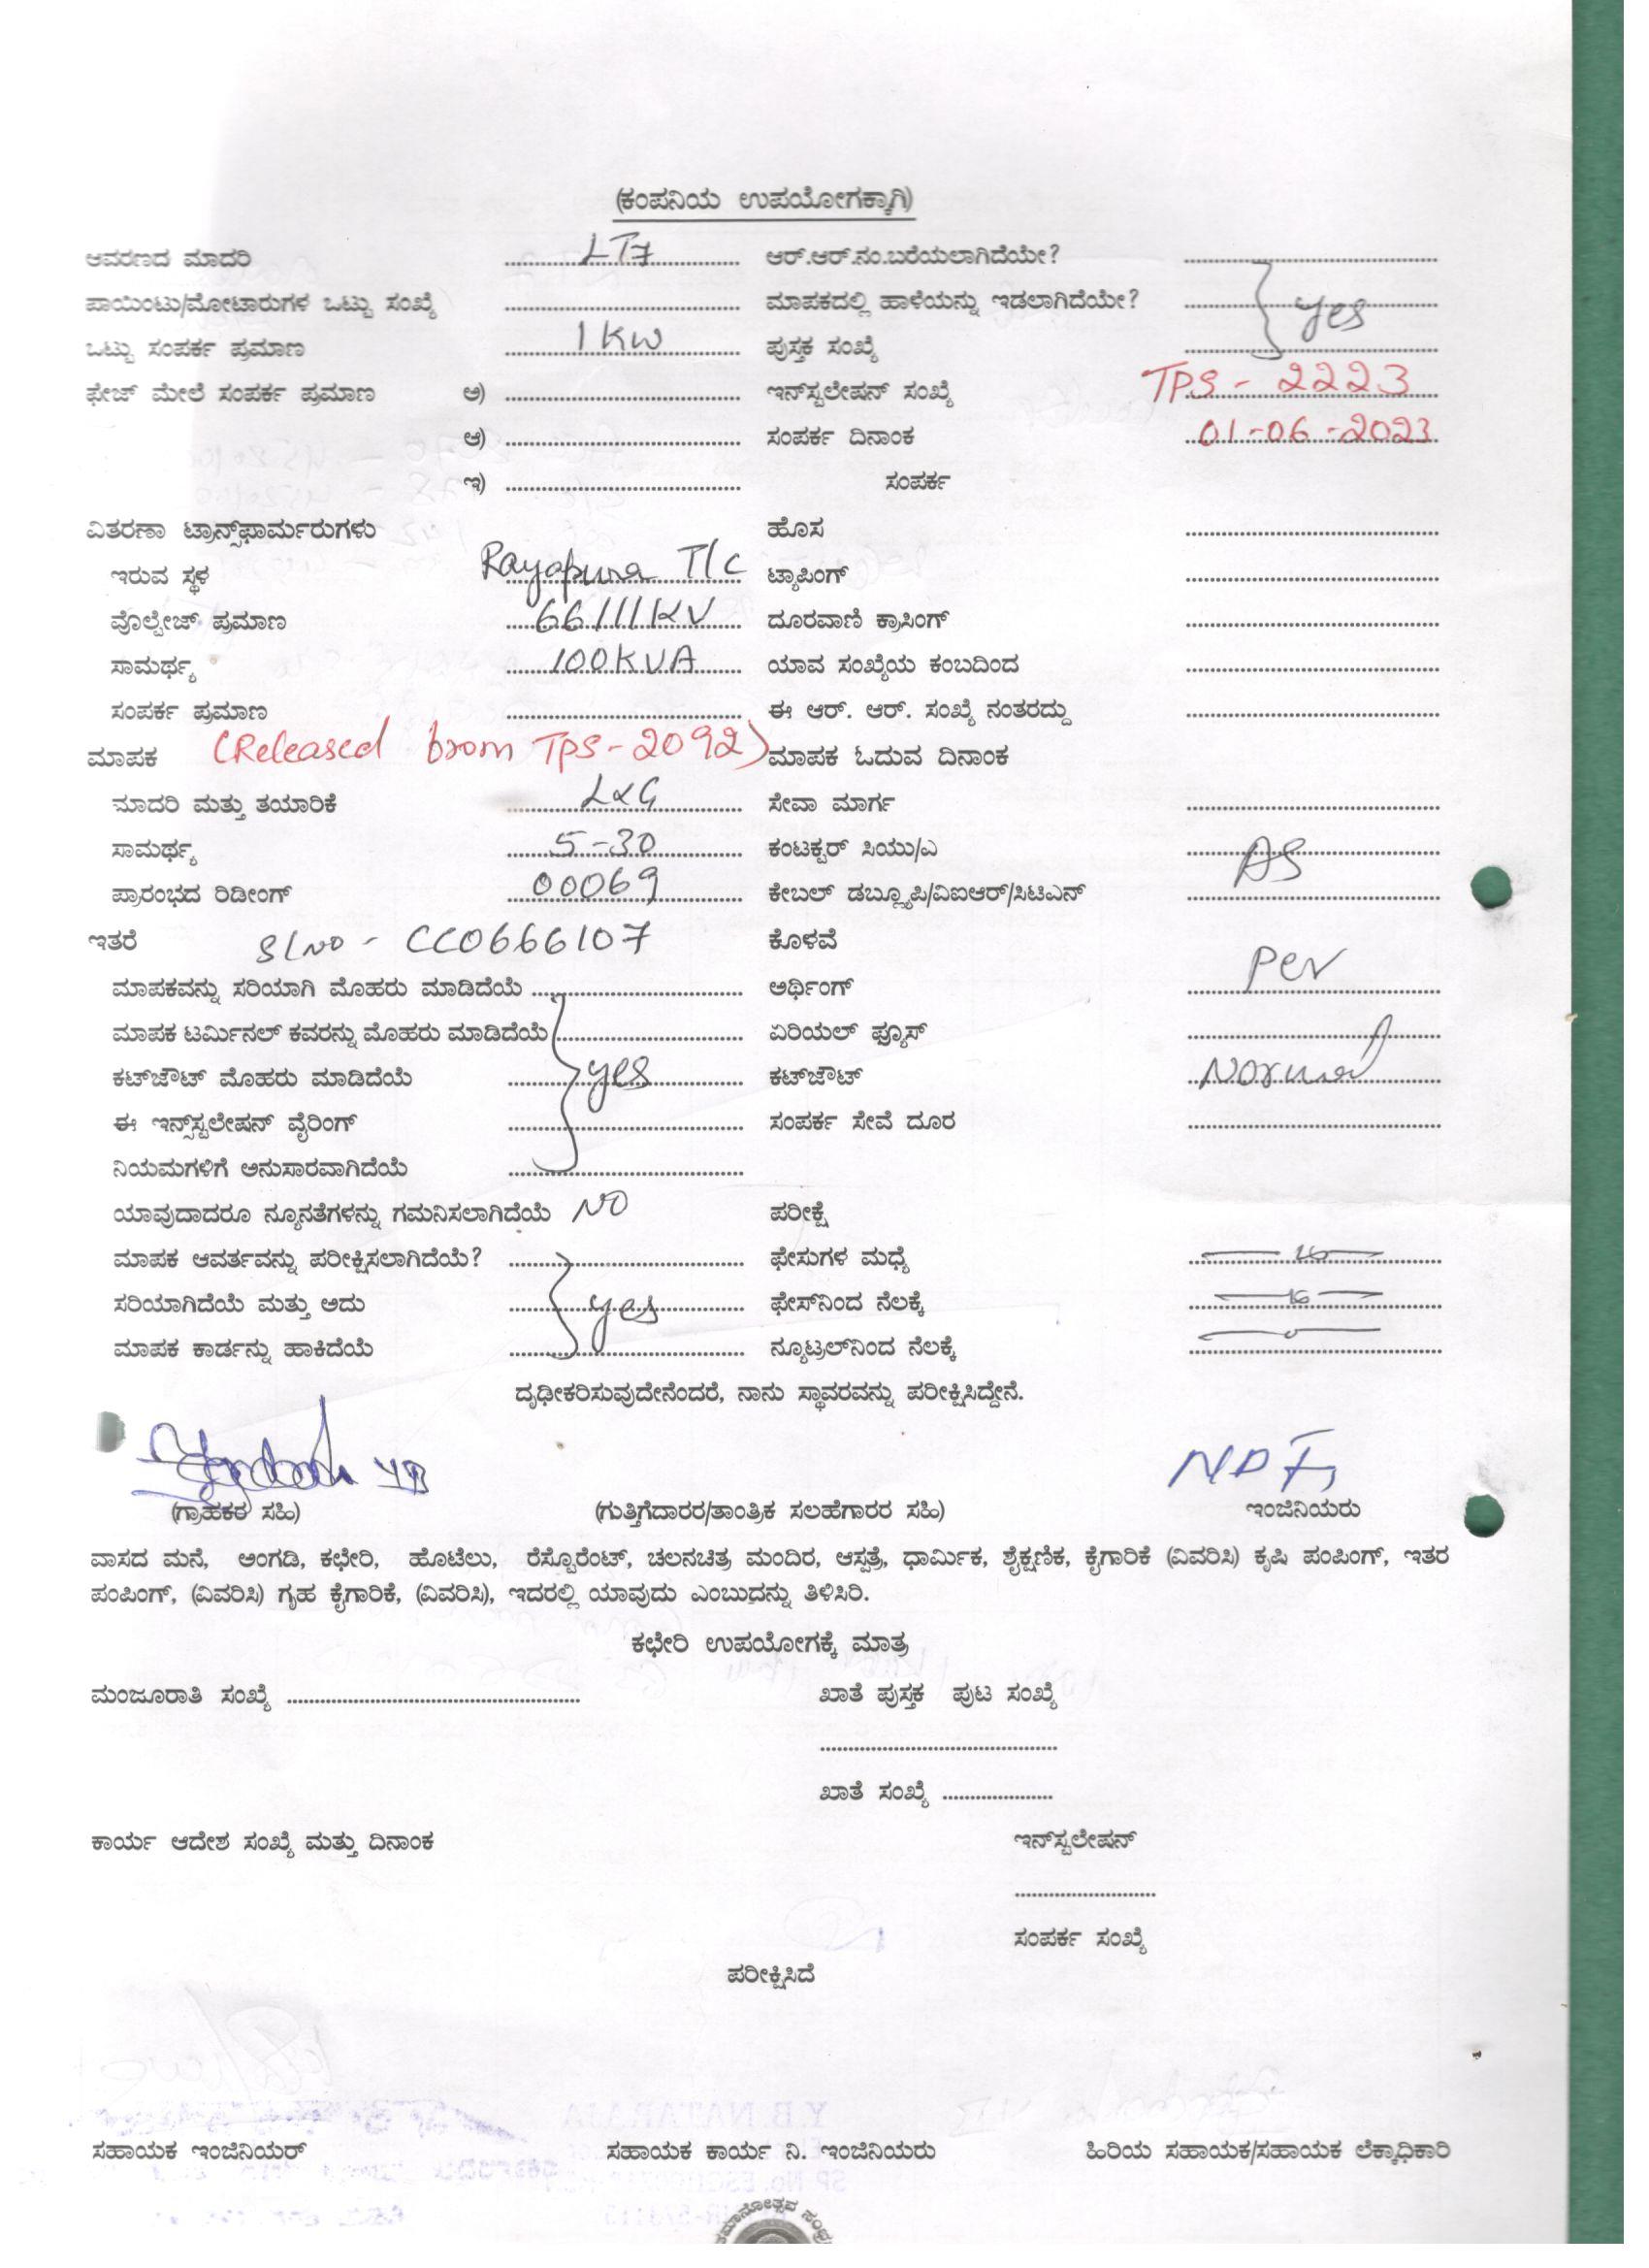 (ಕಂಪನಿಯ ಉಪಯೋಗಕ್ಕಾಗಿ)
ಆವರಣದ ಮಾದರಿ LT7 ಆರ್.ಆರ್.ನಂ.ಬರೆಯಲಾಗಿದೆಯೇ?
ಪಾಯಿಂಟು/ಮೋಟಾರುಗಳ ಒಟ್ಟು ಸಂಖ್ಯೆ ಮಾಪಕದಲ್ಲಿ ಹಾಳೆಯನ್ನು ಇಡಲಾಗಿದೆಯೇ? yes
ಒಟ್ಟು ಸಂಪರ್ಕ ಪ್ರಮಾಣ 1 KW ಪುಸ್ತಕ ಸಂಖ್ಯೆ
ಫೇಜ್ ಮೇಲೆ ಸಂಪರ್ಕ ಪ್ರಮಾಣ ಅ) ಇನ್‌ಸ್ಟಲೇಷನ್ ಸಂಖ್ಯೆ TPS - 2223
ಆ) ಸಂಪರ್ಕ ದಿನಾಂಕ 01-06-2023
ಇ) ಸಂಪರ್ಕ
ವಿತರಣಾ ಟ್ರಾನ್ಸ್‌ಫಾರ್ಮರುಗಳು ಹೊಸ
ಇರುವ ಸ್ಥಳ Rayapura T/C ಟ್ಯಾಪಿಂಗ್
ವೊಲ್ಟೇಜ್ ಪ್ರಮಾಣ 66/11KV ದೂರವಾಣಿ ಕ್ರಾಸಿಂಗ್
ಸಾಮರ್ಥ್ಯ 100KVA ಯಾವ ಸಂಖ್ಯೆಯ ಕಂಬದಿಂದ
ಸಂಪರ್ಕ ಪ್ರಮಾಣ ಈ ಆರ್. ಆರ್. ಸಂಖ್ಯೆ ನಂತರದ್ದು
ಮಾಪಕ (Released from TPS-2092) ಮಾಪಕ ಓದುವ ದಿನಾಂಕ
ಮಾದರಿ ಮತ್ತು ತಯಾರಿಕೆ L&G ಸೇವಾ ಮಾರ್ಗ
ಸಾಮರ್ಥ್ಯ 5-30 ಕಂಟಕ್ಟರ್ ಸಿಯು/ಎ
ಪ್ರಾರಂಭದ ರಿಡೀಂಗ್ 00069 ಕೇಬಲ್ ಡಬ್ಲ್ಯೂಪಿ/ವಿಐಆರ್/ಸಿಟಿಎನ್ AS
ಇತರೆ Sl No - CC0666107 ಕೊಳವೆ
ಮಾಪಕವನ್ನು ಸರಿಯಾಗಿ ಮೊಹರು ಮಾಡಿದೆಯೆ ಅರ್ಥಿಂಗ್ Per
ಮಾಪಕ ಟರ್ಮಿನಲ್ ಕವರನ್ನು ಮೊಹರು ಮಾಡಿದೆಯೆ ಏರಿಯಲ್ ಫ್ಯೂಸ್
ಕಟ್‌ಔಟ್ ಮೊಹರು ಮಾಡಿದೆಯೆ yes ಕಟ್‌ಔಟ್ Normal
ಈ ಇನ್ಸ್‌ಸ್ಟಲೇಷನ್ ವೈರಿಂಗ್ ಸಂಪರ್ಕ ಸೇವೆ ದೂರ
ನಿಯಮಗಳಿಗೆ ಅನುಸಾರವಾಗಿದೆಯೆ
ಯಾವುದಾದರೂ ನ್ಯೂನತೆಗಳನ್ನು ಗಮನಿಸಲಾಗಿದೆಯೆ NO ಪರೀಕ್ಷೆ
ಮಾಪಕ ಆವರ್ತವನ್ನು ಪರೀಕ್ಷಿಸಲಾಗಿದೆಯೆ? ಫೇಸುಗಳ ಮಧ್ಯೆ
ಸರಿಯಾಗಿದೆಯೆ ಮತ್ತು ಅದು yes ಫೇಸ್‌ನಿಂದ ನೆಲಕ್ಕೆ
ಮಾಪಕ ಕಾರ್ಡನ್ನು ಹಾಕಿದೆಯೆ ನ್ಯೂಟ್ರಲ್‌ನಿಂದ ನೆಲಕ್ಕೆ
ದೃಢೀಕರಿಸುವುದೇನೆಂದರೆ, ನಾನು ಸ್ಥಾವರವನ್ನು ಪರೀಕ್ಷಿಸಿದ್ದೇನೆ.
(ಗ್ರಾಹಕರ ಸಹಿ) (ಗುತ್ತಿಗೆದಾರರ/ತಾಂತ್ರಿಕ ಸಲಹೆಗಾರರ ಸಹಿ) ಇಂಜಿನಿಯರು
ವಾಸದ ಮನೆ, ಅಂಗಡಿ, ಕಛೇರಿ, ಹೊಟೆಲು, ರೆಸ್ಟೊರೆಂಟ್, ಚಲನಚಿತ್ರ ಮಂದಿರ, ಆಸ್ಪತ್ರೆ, ಧಾರ್ಮಿಕ, ಶೈಕ್ಷಣಿಕ, ಕೈಗಾರಿಕೆ (ವಿವರಿಸಿ) ಕೃಷಿ ಪಂಪಿಂಗ್, ಇತರ
ಪಂಪಿಂಗ್, (ವಿವರಿಸಿ) ಗೃಹ ಕೈಗಾರಿಕೆ, (ವಿವರಿಸಿ), ಇದರಲ್ಲಿ ಯಾವುದು ಎಂಬುದನ್ನು ತಿಳಿಸಿರಿ.
ಕಛೇರಿ ಉಪಯೋಗಕ್ಕೆ ಮಾತ್ರ
ಮಂಜೂರಾತಿ ಸಂಖ್ಯೆ ಖಾತೆ ಪುಸ್ತಕ ಪುಟ ಸಂಖ್ಯೆ
ಖಾತೆ ಸಂಖ್ಯೆ
ಕಾರ್ಯ ಆದೇಶ ಸಂಖ್ಯೆ ಮತ್ತು ದಿನಾಂಕ ಇನ್‌ಸ್ಟಲೇಷನ್
ಸಂಪರ್ಕ ಸಂಖ್ಯೆ
ಪರೀಕ್ಷಿಸಿದೆ
ಸಹಾಯಕ ಇಂಜಿನಿಯರ್ ಸಹಾಯಕ ಕಾರ್ಯ ನಿ. ಇಂಜಿನಿಯರು ಹಿರಿಯ ಸಹಾಯಕ/ಸಹಾಯಕ ಲೆಕ್ಕಾಧಿಕಾರಿ